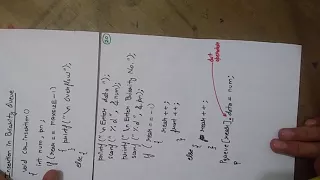 Insertion in Priority Queue
void Qu_insertion()
{
int num, pn;
if (rear == MAXSIZE-1)
{
printf("\n Overflow");
}
else {
printf("\n Enter data");
scanf("%d", &num);
printf("\n Enter Priority No.");
scanf("%d", &pn);
if (rear == -1)
{
rear++;
front++;
}
else
{ rear++;
}
Pqueue[rear].data = num;
P
dot
operator